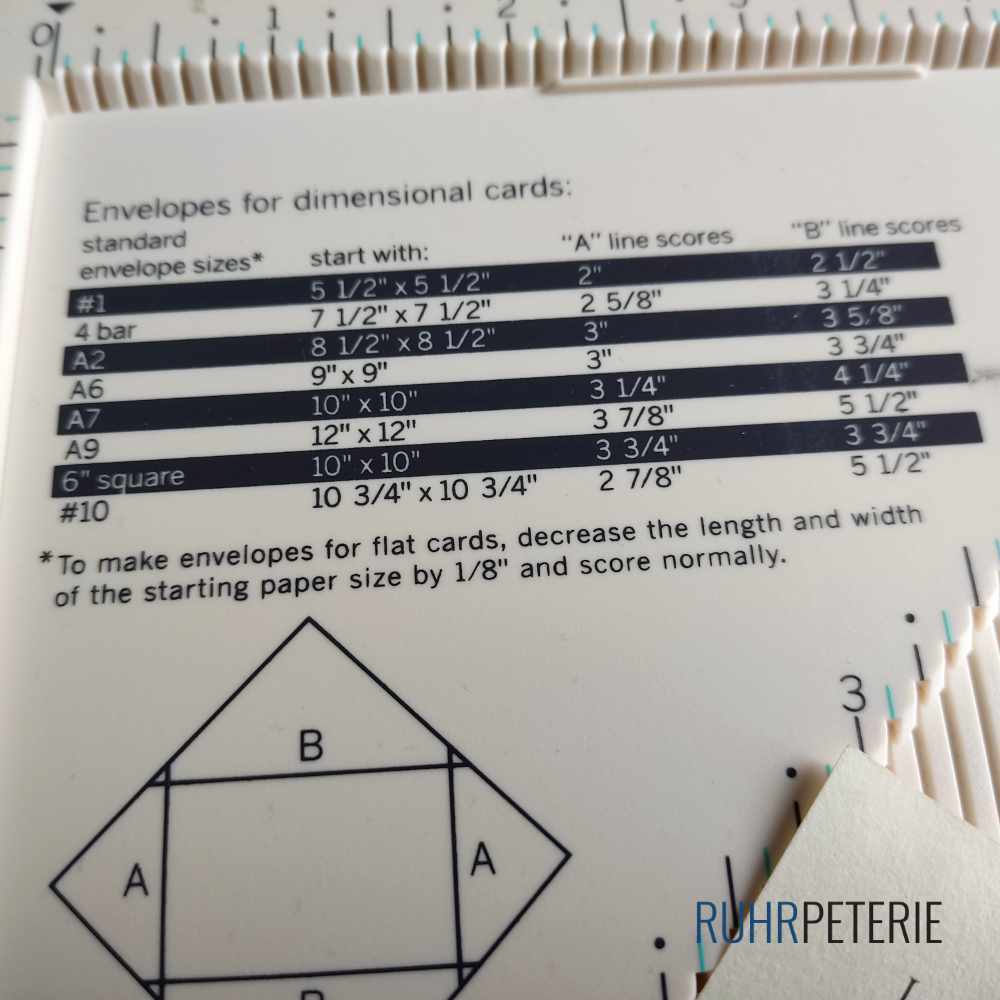 0 1 2 3
Envelopes for dimensional cards:
standard envelope sizes* start with: "A" line scores "B" line scores
#1 5 1/2" x 5 1/2" 2" 2 1/2"
4 bar 7 1/2" x 7 1/2" 2 5/8" 3 1/4"
A2 8 1/2" x 8 1/2" 3" 3 5/8"
A6 9" x 9" 3" 3 3/4"
A7 10" x 10" 3 1/4" 4 1/4"
A9 12" x 12" 3 7/8" 5 1/2"
6" square 10" x 10" 3 3/4" 3 3/4"
#10 10 3/4" x 10 3/4" 2 7/8" 5 1/2"
*To make envelopes for flat cards, decrease the length and width
of the starting paper size by 1/8" and score normally.
3
B
A A
B
RUHRPETERIE